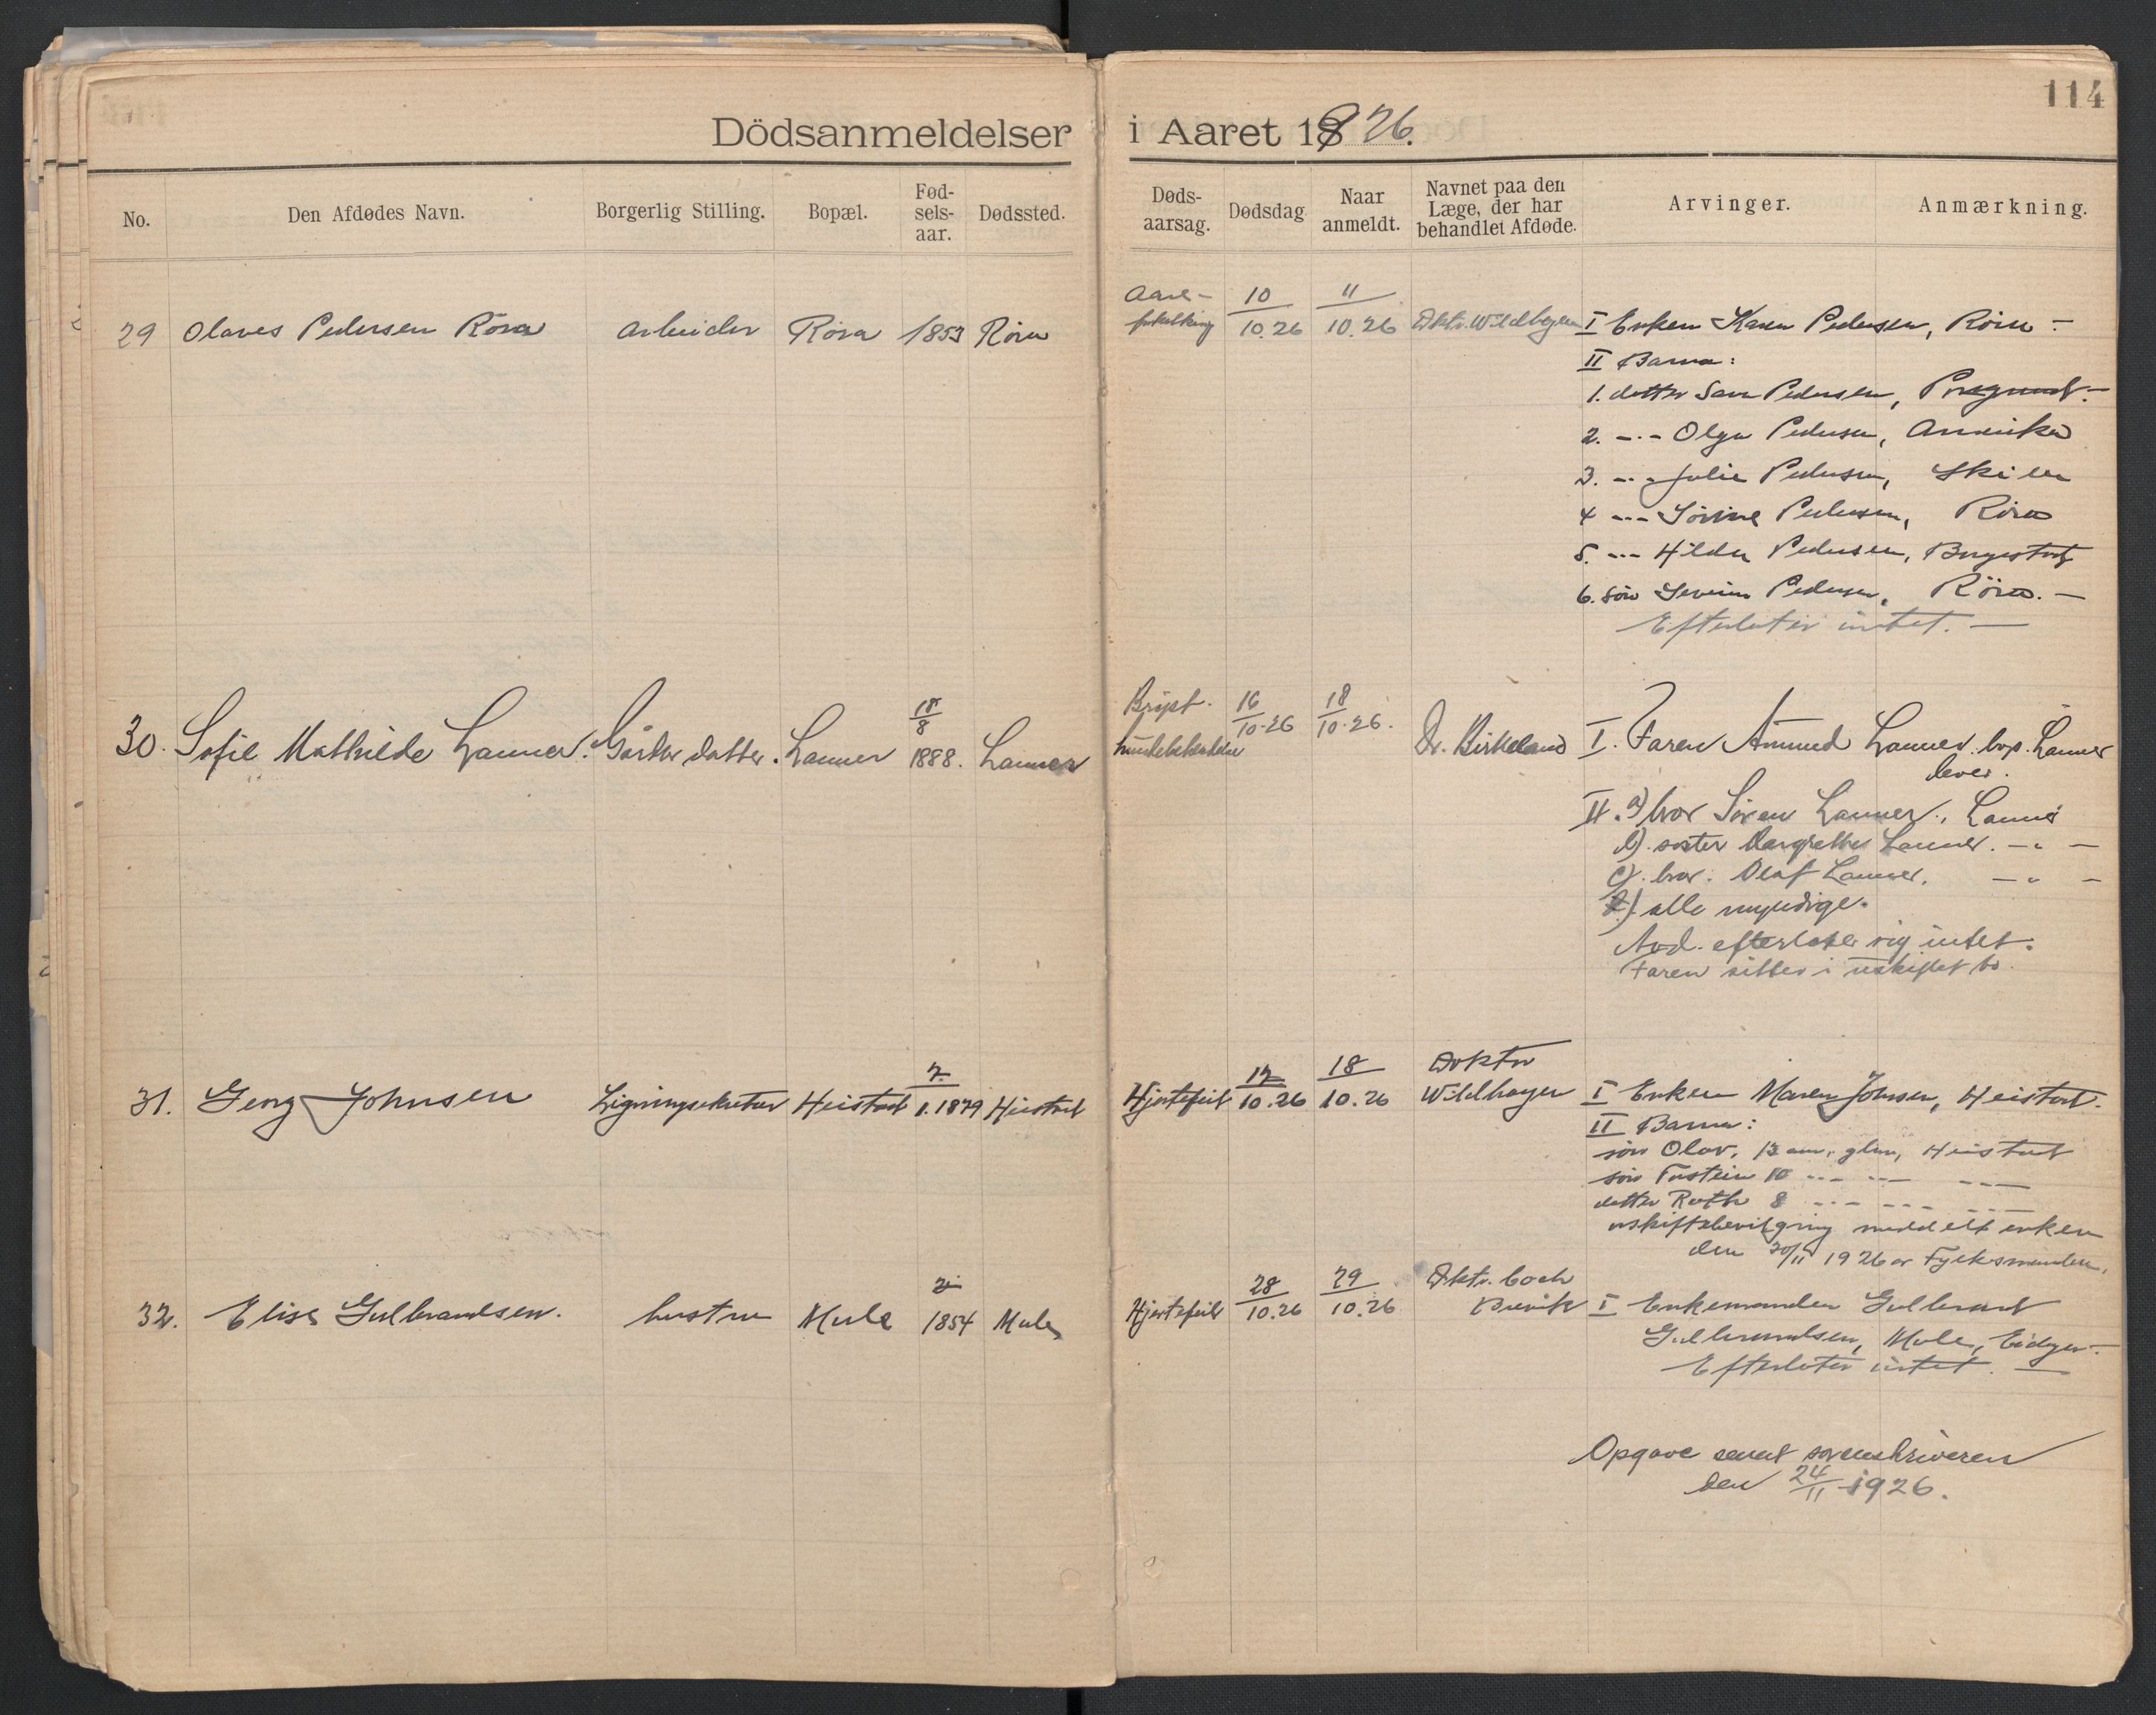 114
Dödsanmeldelser i Aaret 1926.
No. Den Afdødes Navn. Borgerlig Stilling. Bopæl. Fød-sels-aar. Dødssted. Døds-aarsag. Dødsdag Naar anmeldt. Navnet paa den Læge, der har behandlet Afdøde. Arvinger. Anmærkning.
29 Olaves Pedersen Röra arbeider Röra 1853 Röra Aare- 10/10.26 11/10.26 Dktr. Wildhagen I Enken Karen Pedersen, Röra -
forkalkning
II Barna:
1. datter Sara Pedersen, Porsgrund. -
2. -"- Olga Pedersen, Amerika
3. -"- Julie Pedersen, Skien
4 -"- Sörine Pedersen, Röra
5. -"- Hilda Pedersen, Borgestad
6. sön Severin Pedersen, Röra. -
Efterlater intet. -
30. Sofie Mathilde Lanner. Gårdbr. datter. Lanner 18/8 1888. Lanner Bryst. 16/10-26 18/10-26. Dr. Birkeland I. Faren Amund Lanner. bop. Lanner
lever.
II. a) bror Sören Lanner., Lanner
b). søster Margrethe Lanner. -"-
c). bror. Olaf Lanner. -"-
alle myndige.
Avd. efterlater sig intet.
Faren sitter i uskiftet bo.
31. Georg Johnsen Ligningssekretær Heistad 7/1.1879 Heistad Hjertefeil 17/10.26 18/10.26 Doktor
Wildhagen I Enken Maren Johnsen, Heistad.
II Barna:
sön Olav, 13 aar gl., Heistad
sön Torstein 10 -"- -"- -"-
datter Ruth 8 -"- -"- -"-
uskiftebevilgning meddelt enken
den 20/11 1926 av Fylkesmanden.
32. Elise Gulbrandsen. hustru Mule 1854 Mule Hjertefeil 28/10.26 29/10.26 Dktr. Coch
Brevik I Enkemanden Gulbrand
Gulbrandsen, Mule, Eidanger.
Efterlater intet. -
Opgave sendt sorenskriveren
den 24/11-1926.